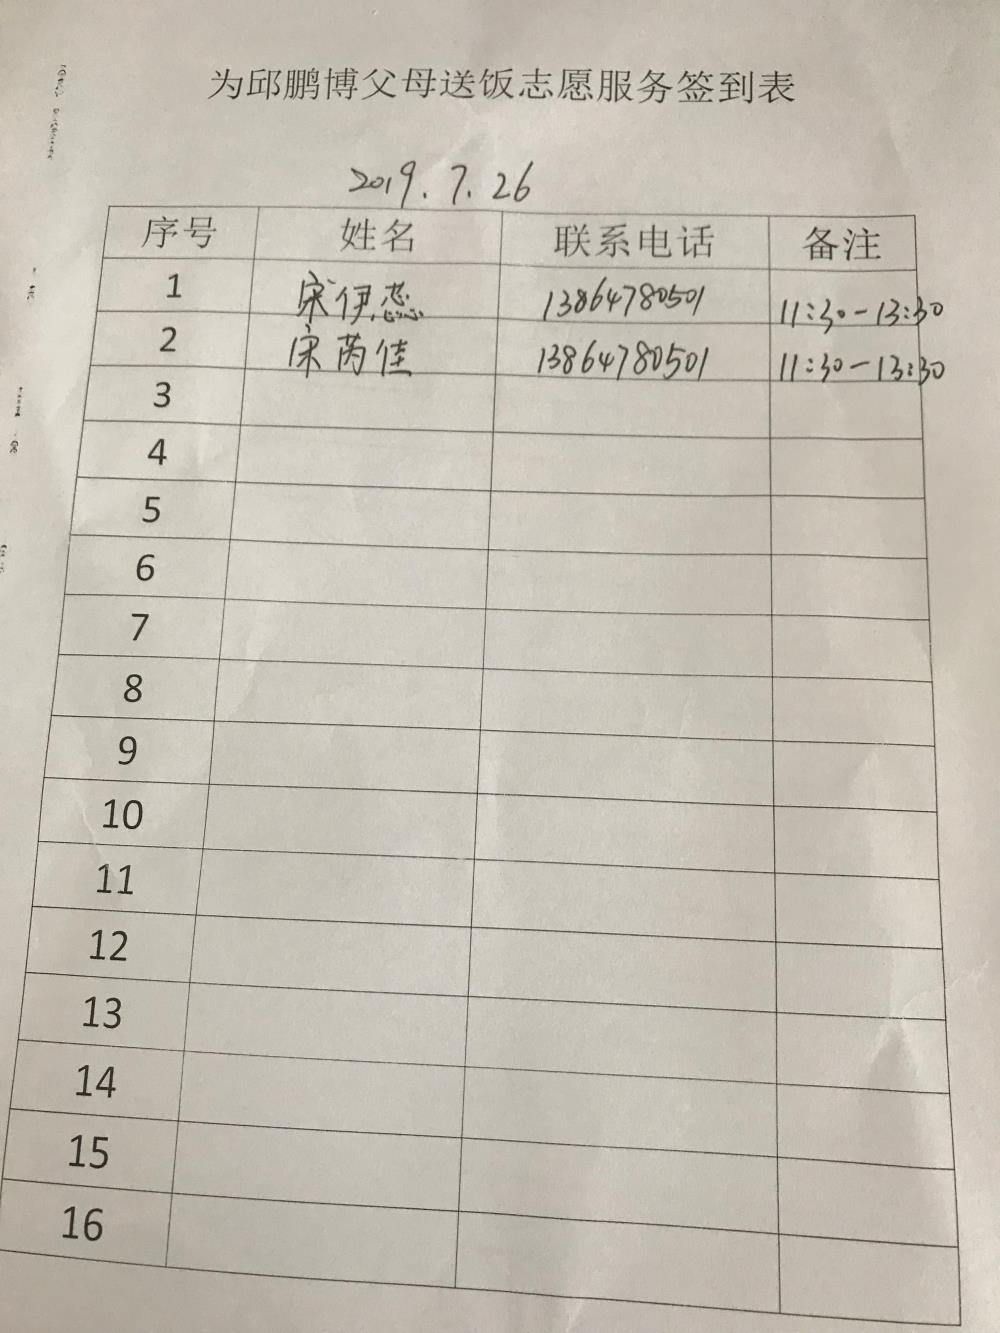 为邱鹏博父母送饭志愿服务签到表
2019.7.26
序号 姓名 联系电话 备注
1 宋伊蕊 13864780501 11:30-13:30
2 宋芮佳 13864780501 11:30-13:30
3
4
5
6
7
8
9
10
11
12
13
14
15
16